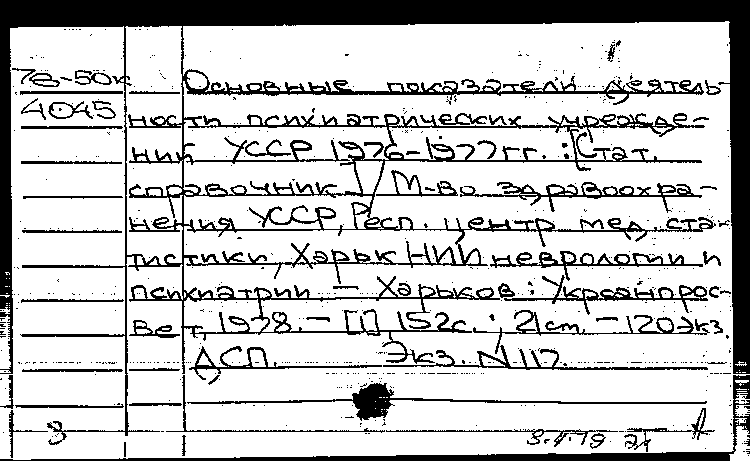 78-50к Основные показатели деятель-
4045 ности психиатрических учрежде-
ний УССР 1976-1977 гг. : [Стат.
справочник] / М-во здравоохра-
нения УССР, Респ. центр мед. ста-
тистики, Харьк НИИ неврологии и
психиатрии. — Харьков : Укрсанпрос-
вет, 1978. — [1], 152 с. ; 21 см. — 120 экз.
ДСП. Экз. N 117.